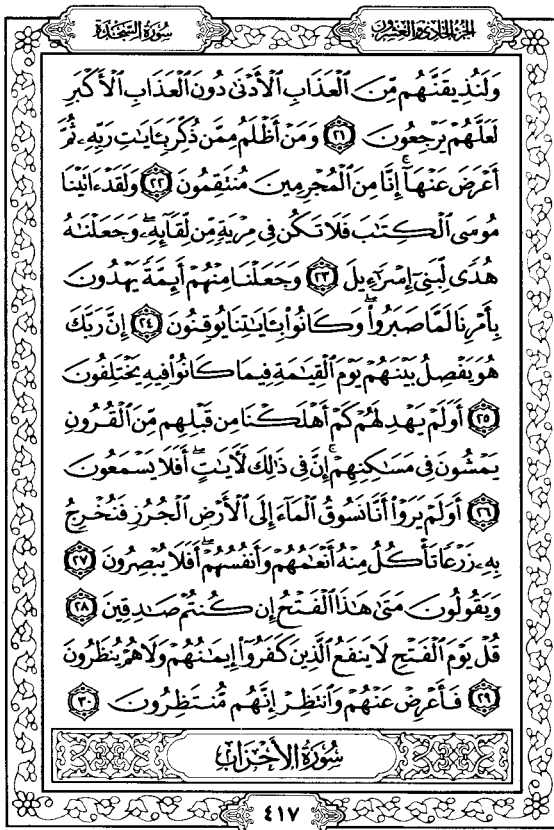 سُورَةُ السَّجْدَةِ
الجُزْءُ الحَادِي وَالعِشْرُونَ
وَلَنُذِيقَنَّهُم مِّنَ ٱلْعَذَابِ ٱلْأَدْنَىٰ دُونَ ٱلْعَذَابِ ٱلْأَكْبَرِ
لَعَلَّهُمْ يَرْجِعُونَ ٢١ وَمَنْ أَظْلَمُ مِمَّن ذُكِّرَ بِـَٔايَٰتِ رَبِّهِۦ ثُمَّ
أَعْرَضَ عَنْهَآ ۚ إِنَّا مِنَ ٱلْمُجْرِمِينَ مُنتَقِمُونَ ٢٢ وَلَقَدْ ءَاتَيْنَا
مُوسَى ٱلْكِتَٰبَ فَلَا تَكُن فِى مِرْيَةٍ مِّن لِّقَآئِهِۦ ۖ وَجَعَلْنَٰهُ
هُدًى لِّبَنِىٓ إِسْرَٰٓءِيلَ ٢٣ وَجَعَلْنَا مِنْهُمْ أَئِمَّةً يَهْدُونَ
بِأَمْرِنَا لَمَّا صَبَرُوا۟ ۖ وَكَانُوا۟ بِـَٔايَٰتِنَا يُوقِنُونَ ٢٤ إِنَّ رَبَّكَ
هُوَ يَفْصِلُ بَيْنَهُمْ يَوْمَ ٱلْقِيَٰمَةِ فِيمَا كَانُوا۟ فِيهِ يَخْتَلِفُونَ
٢٥ أَوَلَمْ يَهْدِ لَهُمْ كَمْ أَهْلَكْنَا مِن قَبْلِهِم مِّنَ ٱلْقُرُونِ
يَمْشُونَ فِى مَسَٰكِنِهِمْ ۚ إِنَّ فِى ذَٰلِكَ لَءَايَٰتٍ ۖ أَفَلَا يَسْمَعُونَ
٢٦ أَوَلَمْ يَرَوْا۟ أَنَّا نَسُوقُ ٱلْمَآءَ إِلَى ٱلْأَرْضِ ٱلْجُرُزِ فَنُخْرِجُ
بِهِۦ زَرْعًا تَأْكُلُ مِنْهُ أَنْعَٰمُهُمْ وَأَنفُسُهُمْ ۖ أَفَلَا يُبْصِرُونَ ٢٧
وَيَقُولُونَ مَتَىٰ هَٰذَا ٱلْفَتْحُ إِن كُنتُمْ صَٰدِقِينَ ٢٨
قُلْ يَوْمَ ٱلْفَتْحِ لَا يَنفَعُ ٱلَّذِينَ كَفَرُوٓا۟ إِيمَٰنُهُمْ وَلَا هُمْ يُنظَرُونَ
٢٩ فَأَعْرِضْ عَنْهُمْ وَٱنتَظِرْ إِنَّهُم مُّنتَظِرُونَ ٣٠
سُورَةُ الأَحْزَابِ
٤١٧